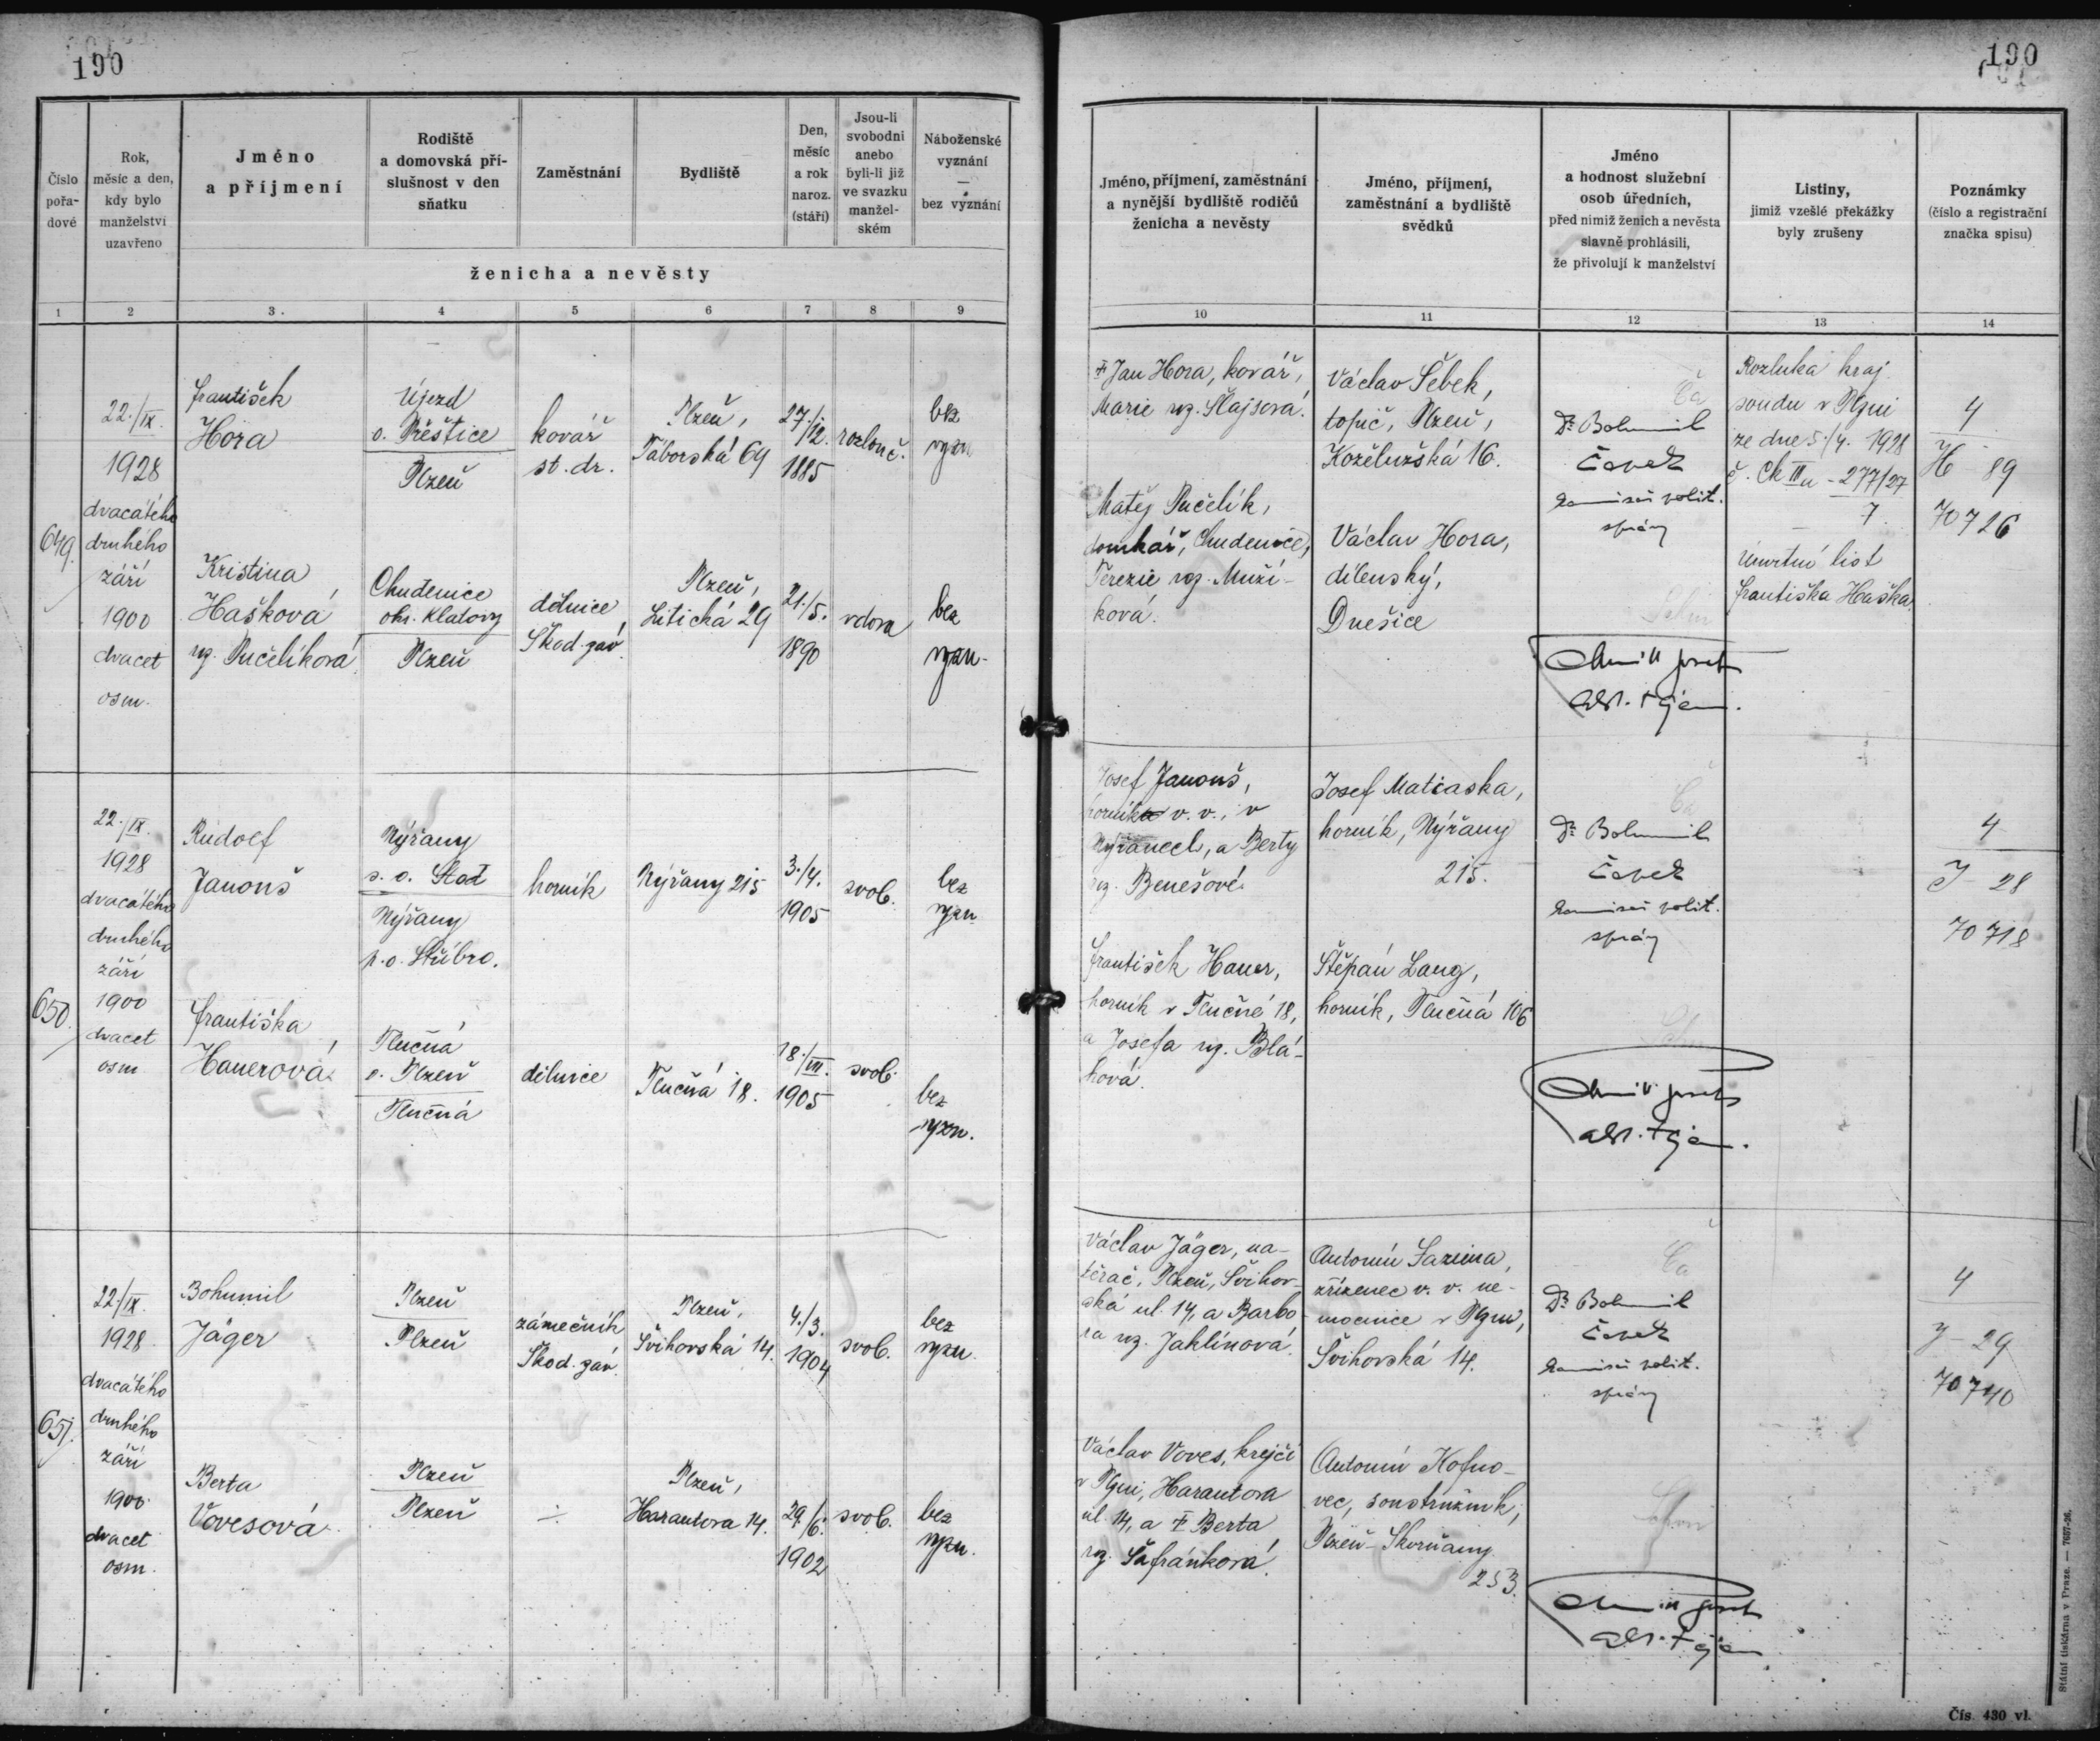 190
190
Číslo
pořa-
dové
Rok,
měsíc a den,
kdy bylo
manželství
uzavřeno
Jméno
a příjmení
Rodiště
a domovská pří-
slušnost v den
sňatku
Zaměstnání
Bydliště
Den,
měsíc
a rok
naroz.
(stáří)
Jsou-li
svobodni
anebo
byli-li již
ve svazku
manžel-
ském
Náboženské
vyznání
—
bez vyznání
ženicha a nevěsty
Jméno, příjmení, zaměstnání
a nynější bydliště rodičů
ženicha a nevěsty
Jméno, příjmení,
zaměstnání a bydliště
svědků
Jméno
a hodnost služební
osob úředních,
před nimiž ženich a nevěsta
slavně prohlásili,
že přivolují k manželství
Listiny,
jimiž vzešlé překážky
byly zrušeny
Poznámky
(číslo a registrační
značka spisu)
1 2 3. 4 5 6 7 8 9
10 11 12 13 14
649.
22./IX.
1928
dvacátého
druhého
září
1900
dvacet
osm.
František
Hora
Újezd
o. Přeštice
Plzeň
kovář
st. dr.
Plzeň,
Táborská 69
27./12.
1885
rozlouč.
bez
vyzn
Kristina
Hašková
roz. Pučelíková
Chudenice
okr. Klatovy
Plzeň
dělnice
Škod. záv.
Plzeň,
Litická 29
21./5.
1890
vdova
bez
vyzn.
† Jan Hora, kovář,
Marie roz. Šlajsová.
Matěj Pučelík,
domkář, Chudenice,
Terezie roz. Muží-
ková.
Václav Šebek,
topič, Plzeň,
Koželužská 16.
Václav Hora,
dílenský,
Dnešice
Dr. Bohumil
Čapek
komisař polit.
správy
Rozluka kraj.
soudu v Plzni
ze dne 5./4. 1928
č. Ck III a - 277/27
7.
Úmrtní list
Františka Haška.
4
H 89
70726
650.
22./IX.
1928
dvacátého
druhého
září
1900
dvacet
osm
Rudolf
Janouš
Nýřany
s. o. Stod
Nýřany
p. o. Stříbro.
horník
Nýřany 215
3./4.
1905
svob.
bez
vyzn
Františka
Hauerová
Tlučná
o. Plzeň
Tlučná
dělnice
Tlučná 18.
18./III.
1905
svob.
bez
vyzn.
Josef Janouš,
horník v. v., v
Nýřanech, a Berty
roz. Benešové.
František Hauer,
horník v Tlučné 18,
a Josefa roz. Blá-
hová.
Josef Matiaska,
horník, Nýřany
215.
Štěpán Lang,
horník, Tlučná 106
Dr. Bohumil
Čapek
komisař polit.
správy
4
J - 28
70718
651.
22./IX.
1928.
dvacátého
druhého
září
1900
dvacet
osm.
Bohumil
Jäger
Plzeň
Plzeň
zámečník
Škod. záv.
Plzeň,
Švihovská 14.
4./3.
1904
svob.
bez
vyzn.
Berta
Vovesová
Plzeň
Plzeň
Plzeň,
Harantova 14.
29./6.
1902
svob.
bez
vyzn.
Václav Jäger, na-
těrač, Plzeň, Švihov-
ská ul. 14, a Barbo-
ra roz. Jahlínová.
Václav Voves, krejčí
v Plzni, Harantova
ul. 14, a † Berta
roz. Šafránková.
Antonín Sazima,
zřízenec v. v. ne-
mocnice v Plzni,
Švihovská 14.
Antonín Kofro-
vec, soustružník,
Plzeň - Skvrňany
253.
Dr. Bohumil
Čapek
komisař polit.
správy
4
J - 29
70740
Státní tiskárna v Praze. — 7667-26.
Čís. 430 vl.